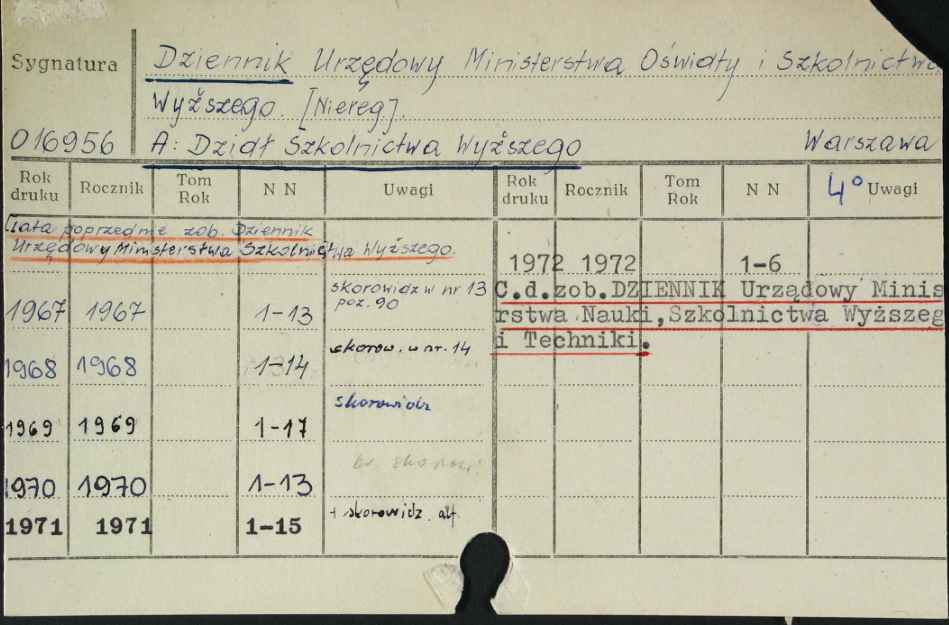 Sygnatura
Dziennik Urzędowy Ministerstwa Oświaty i Szkolnictwa
Wyższego. [Niereg].
016956 A: Dział Szkolnictwa Wyższego Warszawa
Rok druku Rocznik Tom Rok N N Uwagi Rok druku Rocznik Tom Rok N N 4° Uwagi
[Lata poprzednie zob. Dziennik
Urzędowy Ministerstwa Szkolnictwa Wyższego.
1967 1967 1-13 skorowidz w nr 13
poz. 90
1968 1968 1-14 skorow. w nr. 14
1969 1969 1-17 skorowidz
1970 1970 1-13
1971 1971 1-15 + skorowidz alf.
1972 1972 1-6
C.d.zob.DZIENNIK Urządowy Minis
rstwa Nauki,Szkolnictwa Wyższeg
i Techniki.